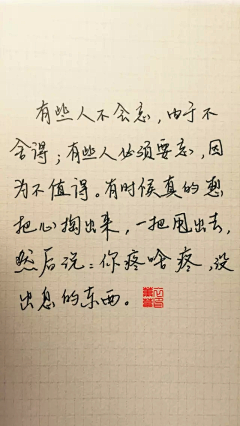 有些人不会忘，由于不
舍得；有些人必须要忘，因
为不值得。有时候真的想
把心掏出来，一把甩出去，
然后说：你疼啥疼，没
出息的东西。